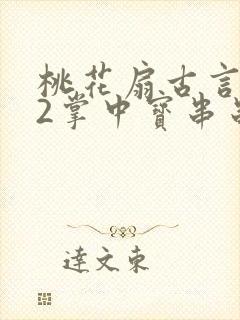 桃花扇古言
2掌中寳串
達文東